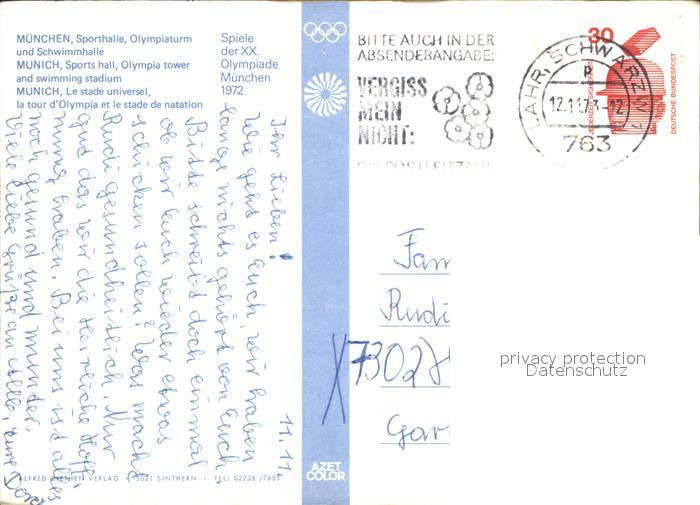 MÜNCHEN, Sporthalle, Olympiaturm
und Schwimmhalle
MUNICH, Sports hall, Olympia tower
and swimming stadium
MUNICH, Le stade universel,
la tour d'Olympia et le stade de natation
Spiele
der XX.
Olympiade
München
1972
BITTE AUCH IN DER
ABSENDERANGABE:
VERGISS
MEIN
NICHT:
DIE POSTLEITZAHL
LAHR, SCHWARZW
12.11.73-12
763
30
DEUTSCHE BUNDESPOST
11.11.
Ihr Lieben!
Wie geht es Euch, wir haben
lange nichts gehört von Euch.
Bitte schreibt doch einmal
ob wir Euch wieder etwas
schicken sollen? Was macht
Rudi gesundheitlich. Nur
gut das wir die Herzliche Hoff-
nung haben. Bei uns ist alles
noch gesund und munter.
Viele liebe Grüße an Alle, eure
Fam
Rudi
X7302
Gar
privacy protection
Datenschutz
AZET
COLOR
ALFRED ZIETHEN VERLAG · 5021 SINTHERN · TEL: 02238 /7655